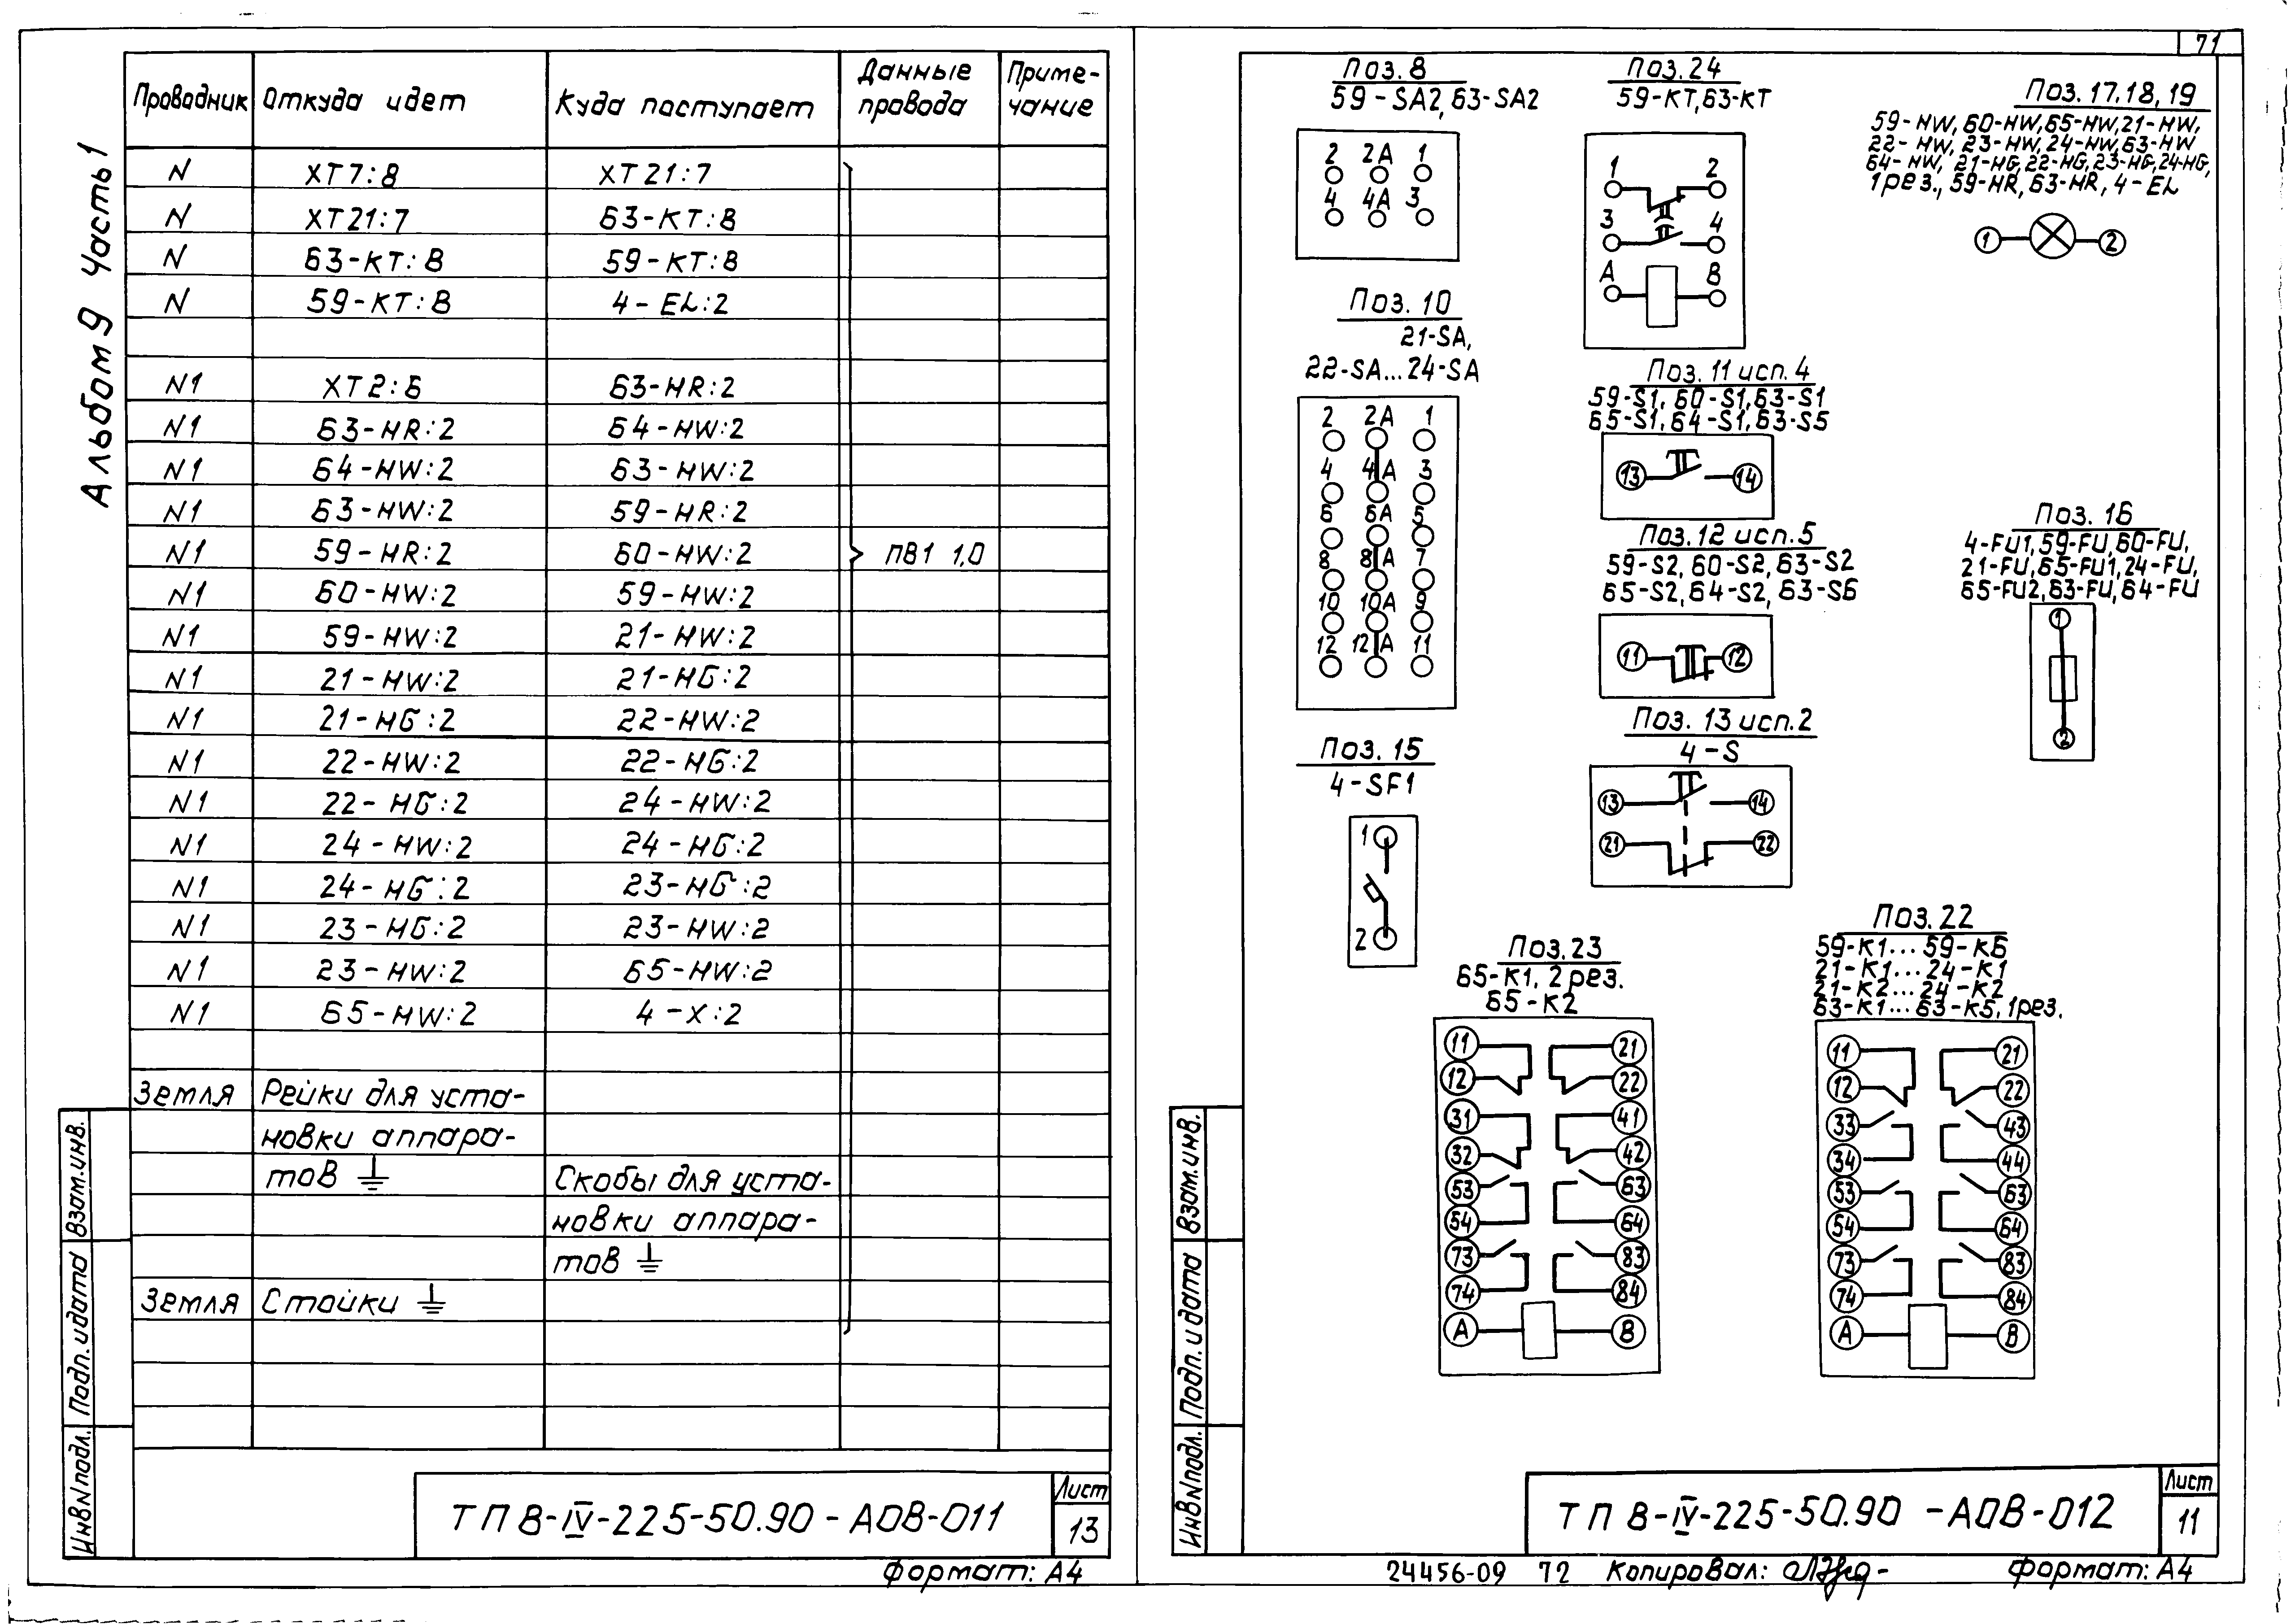 Альбом 9 часть 1
Проводник Откуда идет Куда поступает Данные провода Приме-чание
N ХТ7:8 ХТ21:7
N ХТ21:7 63-КТ:В
N 63-КТ:В 59-КТ:В
N 59-КТ:В 4-EL:2
N1 ХТ2:6 63-HR:2
N1 63-HR:2 64-HW:2
N1 64-HW:2 63-HW:2
N1 63-HW:2 59-HR:2
N1 59-HR:2 60-HW:2 ПВ1 1,0
N1 60-HW:2 59-HW:2
N1 59-HW:2 21-HW:2
N1 21-HW:2 21-HG:2
N1 21-HG:2 22-HW:2
N1 22-HW:2 22-HG:2
N1 22-HG:2 24-HW:2
N1 24-HW:2 24-HG:2
N1 24-HG:2 23-HG:2
N1 23-HG:2 23-HW:2
N1 23-HW:2 65-HW:2
N1 65-HW:2 4-X:2
Земля Рейки для уста-
новки аппара-
тов ⏚ Скобы для уста-
новки аппара-
тов ⏚
Земля Стойки ⏚
Взам.инв.
Подп. и дата
Инв N подл.
ТП В-IV-225-50.90-АОВ-011
Лист
13
Формат: А4
71
Поз. 8
59-SA2, 63-SA2
2 2А 1
4 4А 3
Поз. 10
21-SA,
22-SA...24-SA
2 2А 1
4 4А 3
6 6А 5
8 8А 7
10 10А 9
12 12А 11
Поз. 15
4-SF1
1
2
Поз. 24
59-КТ, 63-КТ
1 2
3 4
А В
Поз. 11 исп. 4
59-S1, 60-S1, 63-S1
65-S1, 64-S1, 63-S5
13 14
Поз. 12 исп. 5
59-S2, 60-S2, 63-S2
65-S2, 64-S2, 63-S6
11 12
Поз. 13 исп. 2
4-S
13 14
21 22
Поз. 17, 18, 19
59-HW, 60-HW, 65-HW, 21-HW,
22-HW, 23-HW, 24-HW, 63-HW
64-HW, 21-HG, 22-HG, 23-HG, 24-HG,
1 рез., 59-HR, 63-HR, 4-EL
1 2
Поз. 16
4-FU1, 59-FU, 60-FU,
21-FU, 65-FU1, 24-FU,
65-FU2, 63-FU, 64-FU
1
2
Поз. 23
65-К1, 2 рез.
65-К2
11 21
12 22
31 41
32 42
53 63
54 64
73 83
74 84
А В
Поз. 22
59-К1...59-К6
21-К1...24-К1
21-К2...24-К2
63-К1...63-К5, 1 рез.
11 21
12 22
33 43
34 44
53 63
54 64
73 83
74 84
А В
Взам.инв.
Подп. и дата
Инв N подл.
ТП В-IV-225-50.90-АОВ-012
Лист
11
24456-09 72 Копировал: Формат: А4